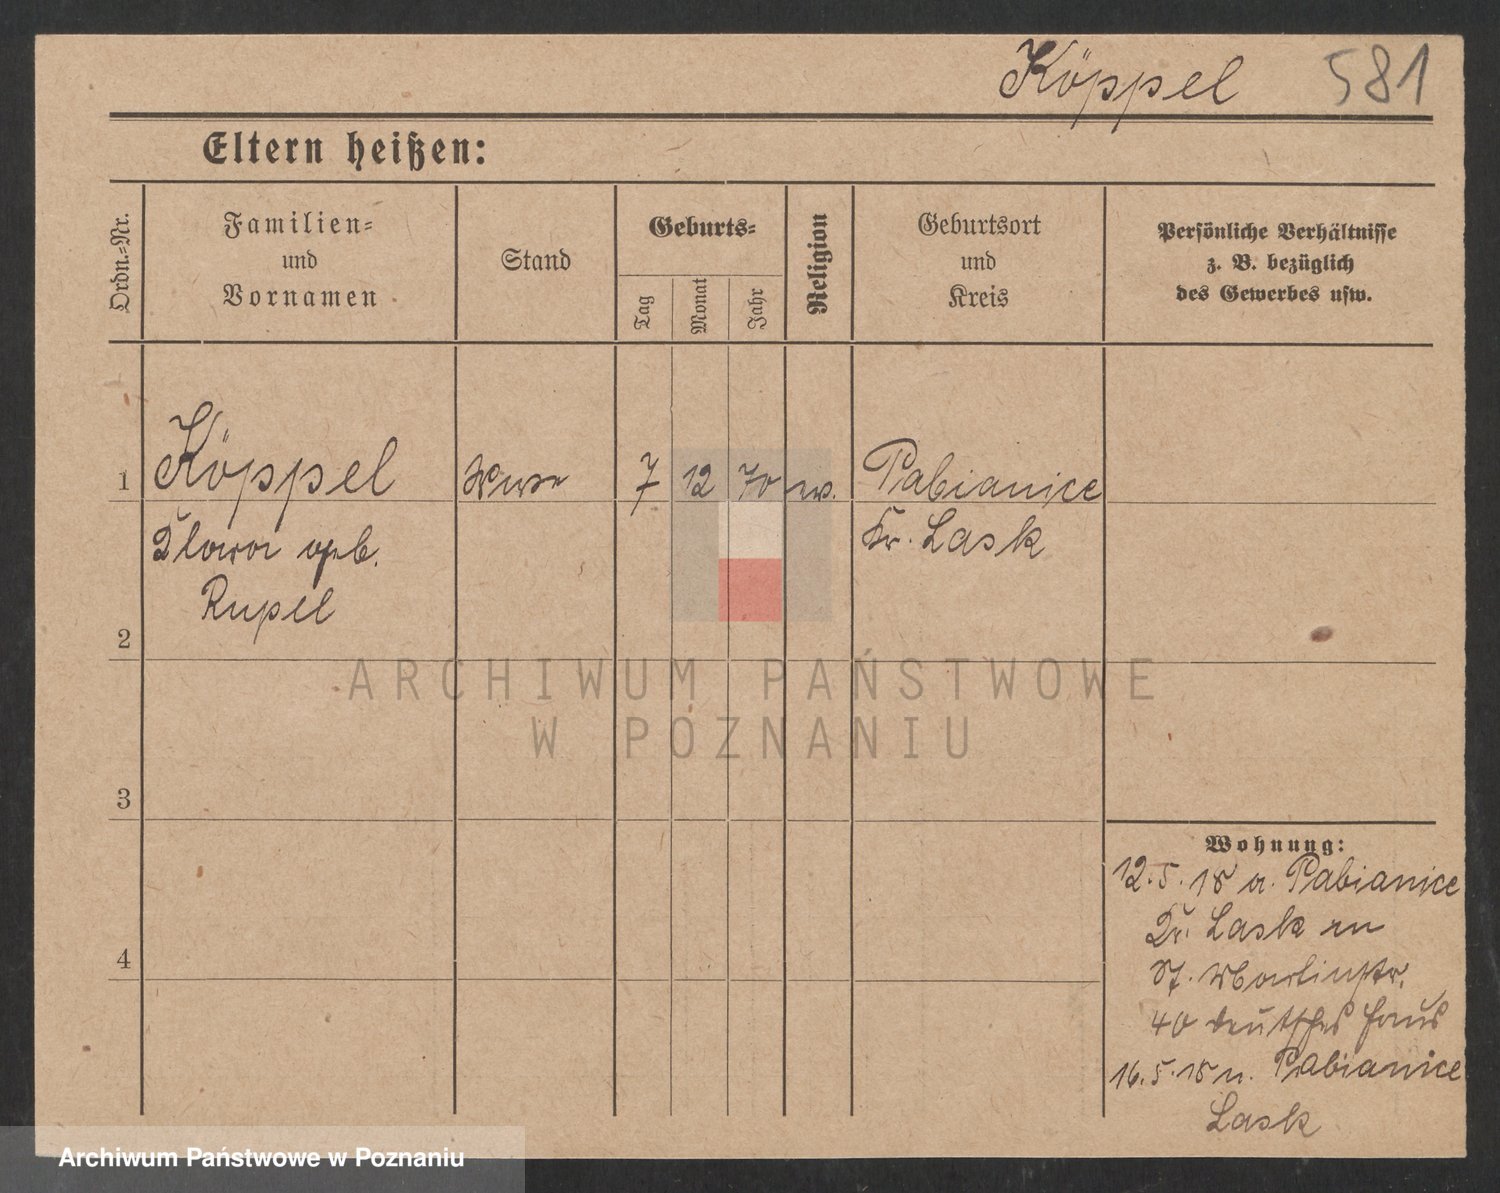 Köppel 581
Eltern heißen:
Ordn.-Nr.
Familien-
und
Vornamen
Stand
Geburts-
Tag
Monat
Jahr
Religion
Geburtsort
und
Kreis
Persönliche Verhältnisse
z. B. bezüglich
des Gewerbes usw.
1 Köppel Wwe 7 12 70 ev. Pabianice
geb. Kr. Lask
Rupel
2
ARCHIWUM PAŃSTWOWE
W POZNANIU
3
Wohnung:
12.5.18 a. Pabianice
Kr. Lask in
St. Martinstr.
4
40 deutsches Haus
16.5.18 n. Pabianice
Lask
Archiwum Państwowe w Poznaniu